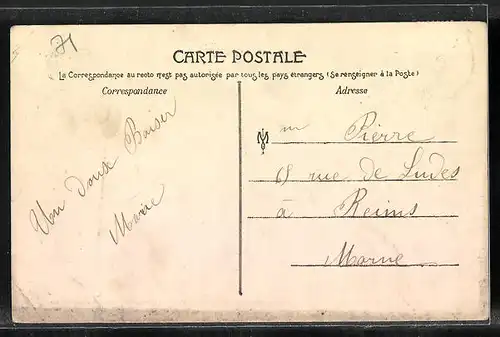 CARTE POSTALE
La Correspondance au recto n'est pas autorisée par tous les pays étrangers (Se renseigner à la Poste)
Correspondance
Adresse
Un doux Baiser
Marie
M Pierre
rue de Ludes
à Reims
Marne